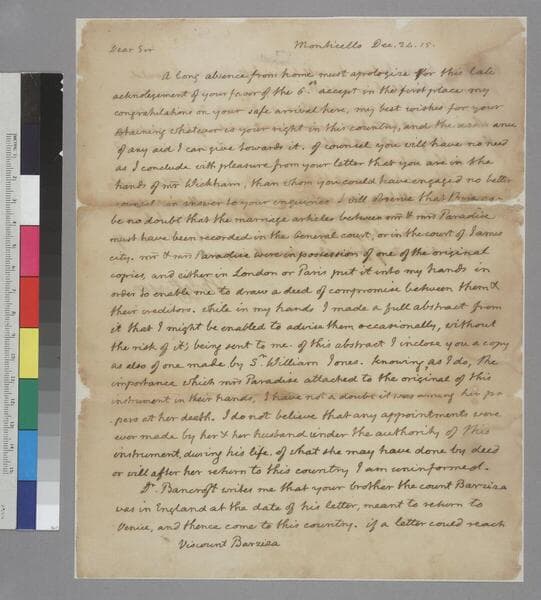 Dear Sir Monticello Dec. 24. 15.
A long absence from home must apologise for this late
acknolegement of your favor of the 6th accept in the first place my
congratulations on your safe arrival here, my best wishes for your
attaining whatever is your right in this country, and the
of any aid I can give towards it. of counsel you will have no need
as I conclude with pleasure from your letter that you are in the
hands of mr Wickham, than whom you could have engaged no better
counsel. in answer to your enquiries I will observe that there can
be no doubt that the marriage articles between mr & mrs Paradise
must have been recorded in the General court, or in the court of James
city. mr & mrs Paradise were in possession of one of the original
copies, and either in London or Paris put it into my hands in
order to enable me to draw a deed of compromise between them &
their creditors. while in my hands I made a full abstract from
it that I might be enabled to advise them occasionally, without
the risk of it's being sent to me. of this abstract I inclose you a copy
as also of one made by Sr. William Jones. knowing, as I do, the
importance which mrs Paradise attached to the original of this
instrument in their hands, I have not a doubt it was among her pa
-pers at her death. I do not believe that any appointments were
ever made by her & her husband under the authority of this
instrument, during his life. of what she may have done by deed
or will after her return to this country I am uninformed.
Dr. Bancroft writes me that your brother the count Barziza
was in England at the date of his letter, meant to return to
Venice, and thence come to this country. if a letter could reach
Viscount Barziza